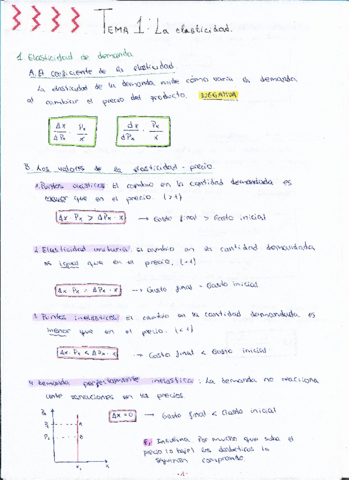 TEMA 1: La elasticidad.
1. Elasticidad de demanda
A. El coeficiente de la elasticidad.
La elasticidad de la demanda mide cómo varía la demanda
al cambiar el precio del producto. NEGATIVA
Δx/ΔPx · Px/x dx/dPx · Px/x
B. Los valores de la elasticidad - precio
1. Puntos elásticos: El cambio en la cantidad demandada es
mayor que en el precio. (>1)
Δx · Px > ΔPx · x → Gasto final > Gasto inicial
2. Elasticidad unitaria: El cambio en la cantidad demandada
es igual que en el precio. (=1)
Δx · Px = ΔPx · x → Gasto final = Gasto inicial
3. Puntos inelásticos: El cambio en la cantidad demandada es
menor que en el precio. (<1)
Δx · Px < ΔPx · x → Gasto final < Gasto inicial
4. Demanda perfectamente inelástica: La demanda no reacciona
ante variaciones en los precios.
Δx=0 → Gasto final < Gasto inicial
Insulina. Por mucho que suba el
precio (o baje) los diabéticos la
seguirán comprando.
-1-